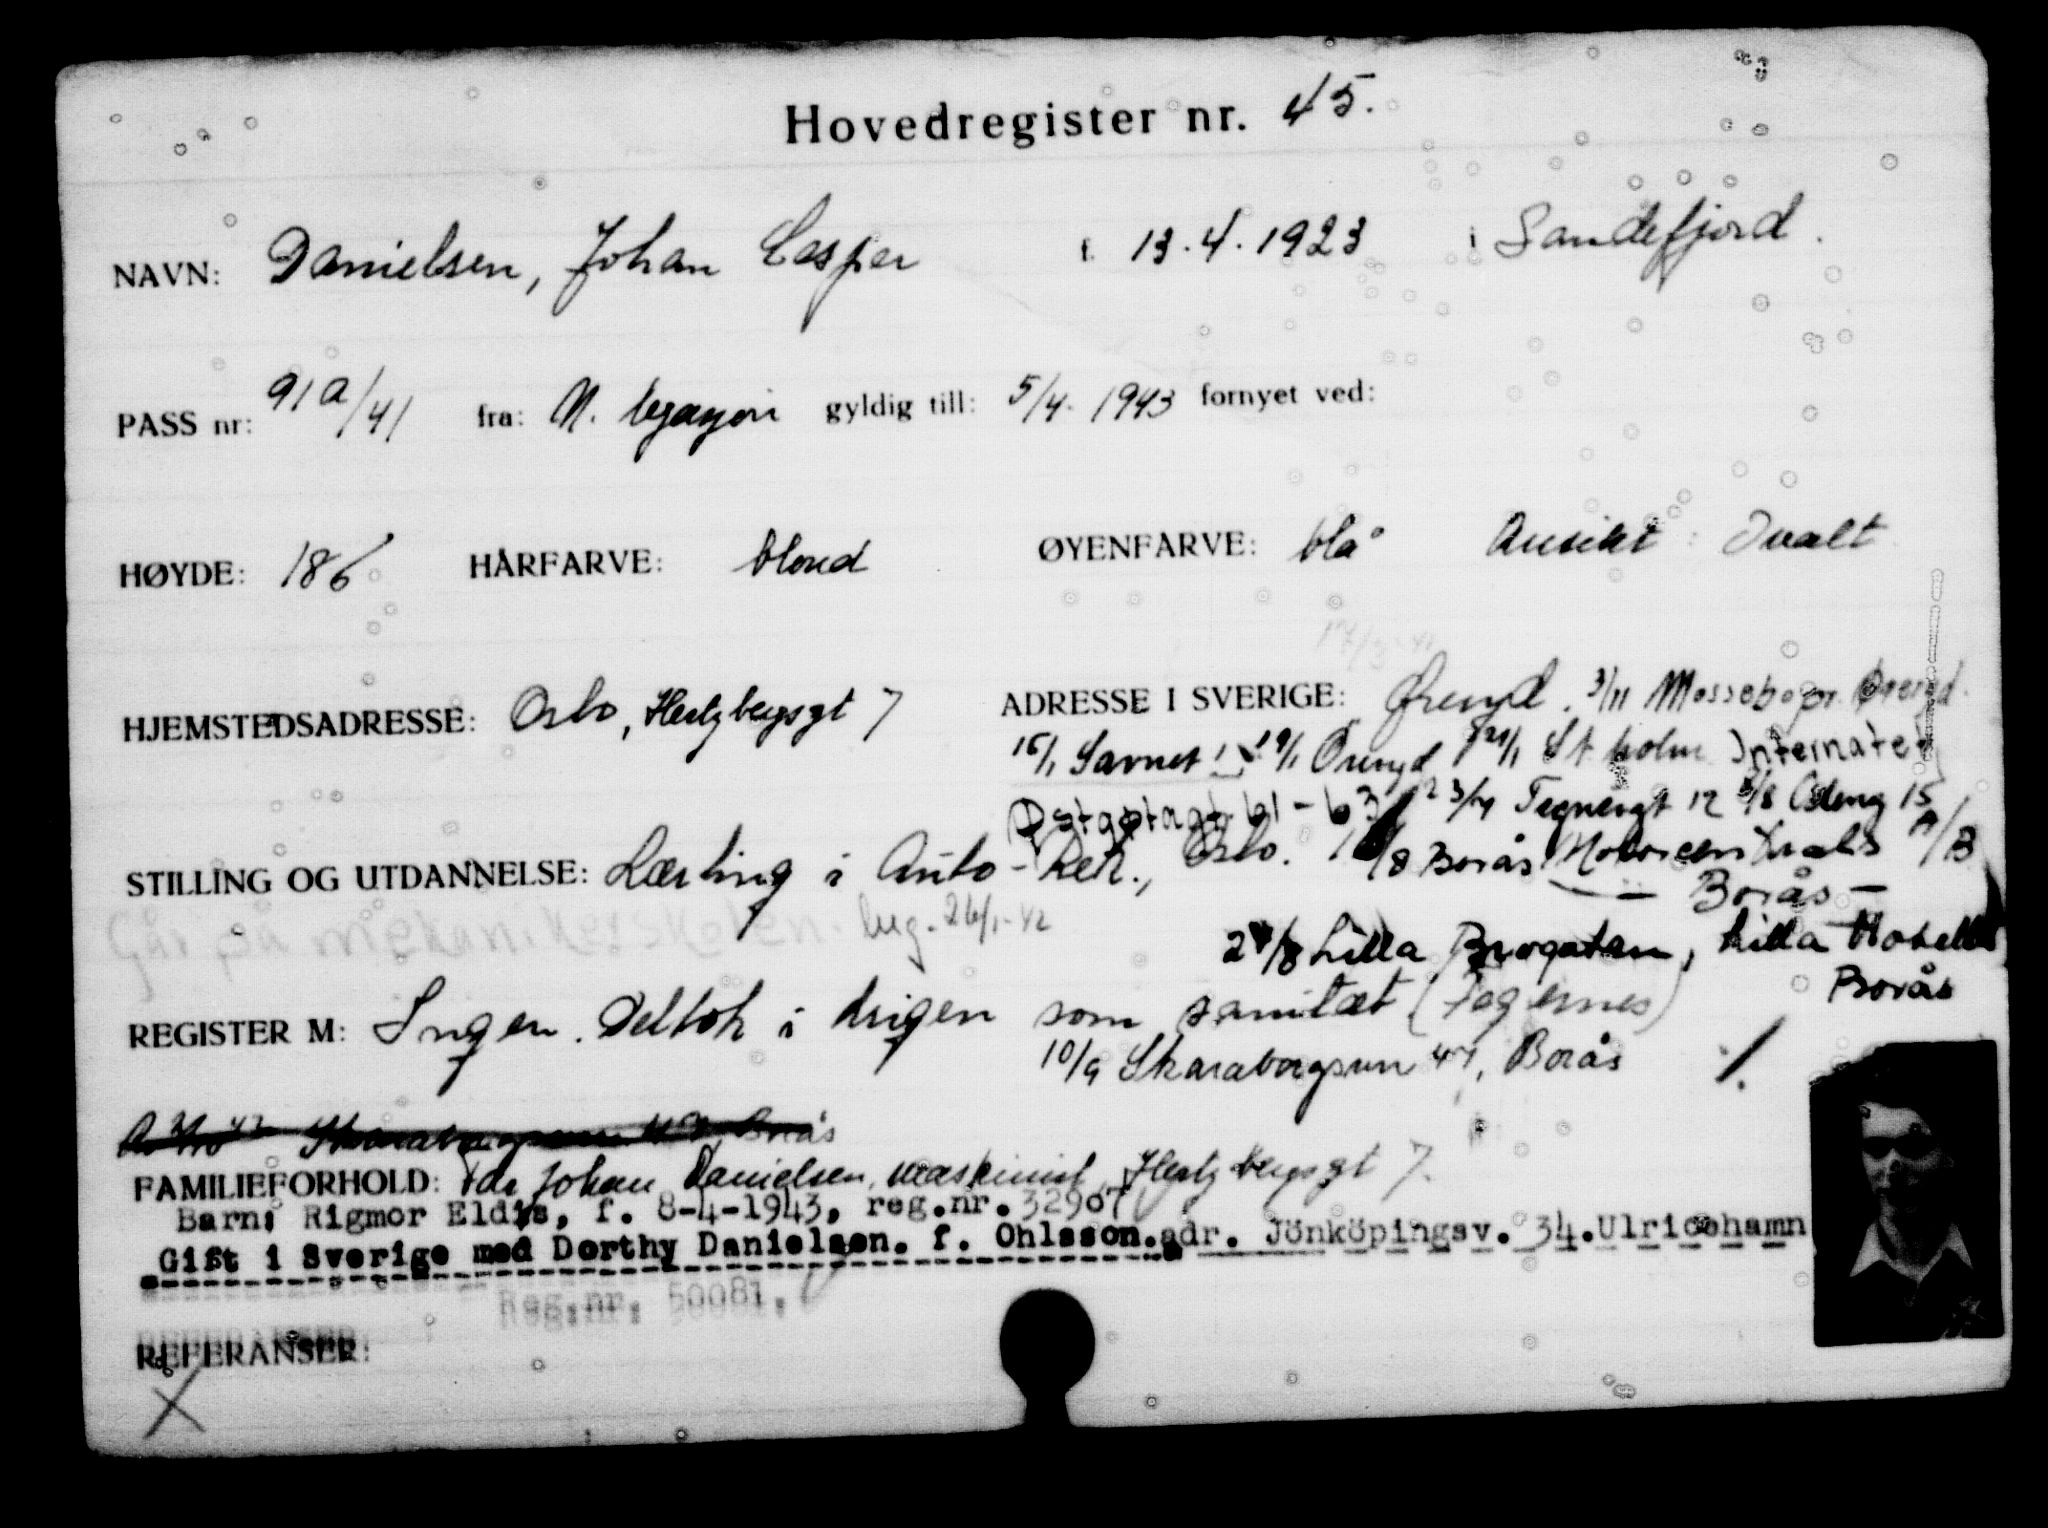 Hovedregister nr. 45.
NAVN: Danielsen, Johan Casper f. 13.4.1923 i Sandefjord.
PASS nr: 91a/41 fra: N. legasjon gyldig till: 5/4. 1943 fornyet ved:
HØYDE: 186 HÅRFARVE: blond ØYENFARVE: blå Ansikt: Ovalt
HJEMSTEDSADRESSE: Oslo, Hertzbergsgt 7 ADRESSE I SVERIGE: Öreryd. 3/11 Mossebo pr. Öreryd.
15/1 Savnet 19/1 Öreryd 21/1 St.holm Internatet
Östgötagt. 61-63 23/4 Tegnergt 12 Odeng 15
STILLING OG UTDANNELSE: Lærling i Auto-Rek., Oslo. /8 Borås Motorcentrals A/B
- Borås -
Går på mekanikerskolen. beg. 26/1-42
24/8 Lilla Brogatan, Lilla Hotellet
Borås
REGISTER M: Ingen. Deltok i krigen som sanitæt (Fagernes)
10/9 Skaraborgsvn 47, Borås
Skaraborgsvn 47, Borås
FAMILIEFORHOLD: Far Johan Danielsen, maskinist, Hertzbergsgt 7.
Barn: Rigmor Eldis, f. 8-4-1943, reg.nr. 32907
Gift i Sverige med Dorthy Danielsen. f. Ohlsson. adr. Jönköpingsv. 34. Ulricehamn
Reg.nr. 50081.
REFERANSER:
X